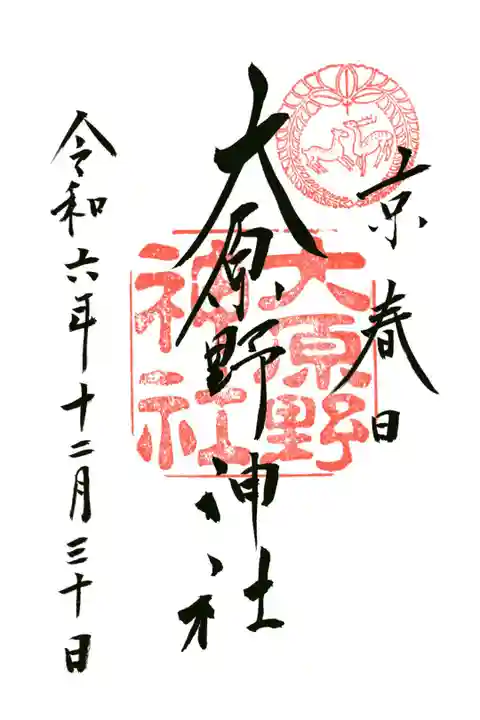 京春日
大原野神社
大原野
神社
令和六年十二月三十日